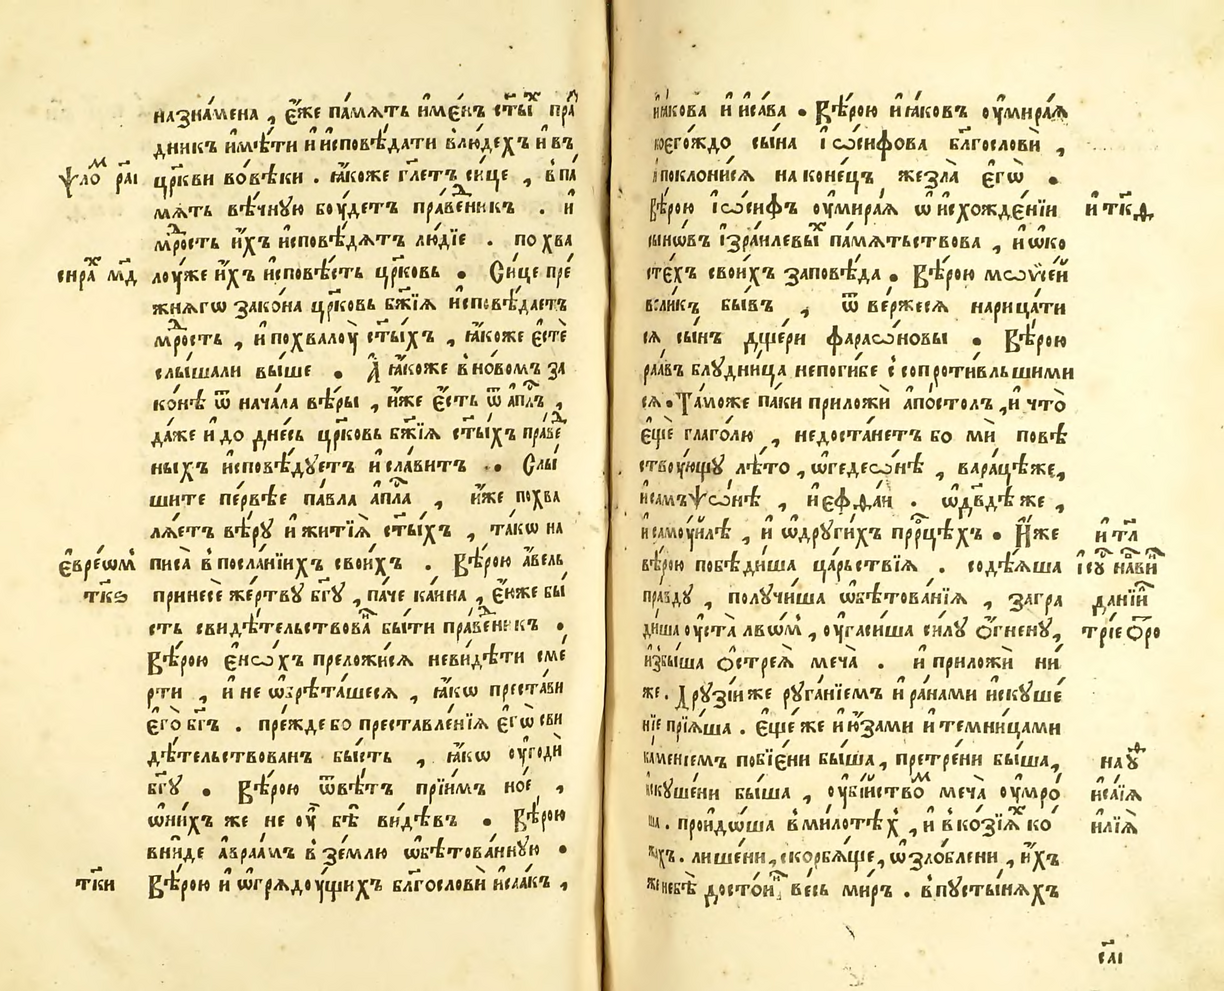 назна́мена , є҆́же па́мѧть и҆ме́нъ ст҃ы́ⷯ пра́ⷡ
дникъ и҆мѣ́ти и҆ и҆сповѣ́дати влю́дехъ и҆ въ
ѱало́ⷨ ра҃і
цр҃кви во́вѣки . ꙗ҆́коже гл҃етъ си́це , в па́
мѧть вѣ́чнꙋю бꙋ́детъ пра́веⷣникъ . и҆
мⷣрость и҆́хъ и҆сповѣ́дѧтъ лю́дїе . похва
сира́ⷯ мд҃
лоу́же и҆́хъ и҆сповѣ́сть цр҃ковь . Си́це пре́
жнѧгѡ зако́на цр҃ковь бж҃їѧ и҆сповѣ́даетъ
мⷣрость , и҆ похвалоу̀ ст҃ы́хъ , ꙗ҆́коже є҆стѐ
слы́шали вы́ше . А҆ ꙗ҆́коже в но́вомъ за
ко́нѣ ѿ нача́ла вѣ́ры , и҆́же є҆́сть ѿ а҆пⷭ҇лъ ,
да́же и҆ до дне́сь цр҃ковь бж҃їѧ ст҃ы́хъ пра́веⷣ
ныхъ и҆сповѣ́дꙋетъ и҆ сла́витъ . Слы́
шите пе́рвѣе па́вла а҆пⷭ҇ла , и҆́же похва
лѧ́етъ вѣ́рꙋ и҆ житїѧ̀ ст҃ы́хъ , та́кѡ на
є҆вре́ѡⷨ
писа̀ в посла́нїихъ свои́хъ . Вѣ́рою а҆́вель
тк҃ѕ
принесѐ же́ртвꙋ бг҃ꙋ , па́че ка́ина , є҆́юже бы́
сть свидѣ́тельствоваⷩ бы́ти пра́веⷣникъ .
Вѣ́рою є҆нѡ́хъ преложи́сѧ неви́дѣти сме́
рти , и҆ не ѡ҆брѣта́шесѧ , ꙗ҆́кѡ преста́ви
є҆го̀ бг҃ъ . пре́жде бо преставле́нїѧ є҆гѡ̀ сви
дѣ́тельствованъ бы́сть , ꙗ҆́кѡ оу҆годѝ
бг҃ꙋ . Вѣ́рою ѿвѣ́тъ прїи́мъ но́е ,
ѡ҆ни́хъ же не оу҆̀ бѣ̀ ви́дѣвъ . Вѣ́рою
вни́де а҆враа́мъ в зе́млю ѡ҆бѣтова́ннꙋю .
тк҃и
Вѣ́рою и҆ ѡ҆грѧдоу́щихъ бл҃гословѝ и҆саа́къ ,
и҆ꙗ́кова и҆ и҆са́ва . Вѣ́рою и҆ꙗ́ковъ оу҆мира́ѧ
коего́ждо сы́на і҆ѡ́сифова бл҃гословѝ ,
і҆ поклони́сѧ на коне́цъ жезла̀ є҆гѡ̀ .
Вѣ́рою і҆ѡ́сифъ оу҆мира́ѧ ѡ҆ и҆схожде́нїи
и҆ тк҃ѳ
сынѡ́въ і҆зра́илевыⷯ па́мѧтьствова , и҆ ѡ҆ко
сте́хъ свои́хъ запове́да . Вѣ́рою мѡѷсе́й
вели́къ бы́въ , ѿ ве́ржесѧ нарица́ти
сѧ сы́нъ дще́ри фараѡ́новы . Вѣ́рою
раа́въ блꙋдни́ца непоги́бе с сопроти́вльшими
сѧ . Та́може па́ки приложѝ а҆по́столъ , и҆ что̀
є҆щѐ глаго́лю , недоста́нетъ бо мѝ повѣ́
ствоующꙋ лѣ́то , ѡ҆ гедеѡ́нѣ , вара́цѣже ,
и҆ самъѱѡ́нѣ , и҆ є҆ѳѳа́и . ѡ҆ дв҃дѣ же ,
и҆ самоу́илѣ , и҆ ѡ҆ дрꙋги́хъ прⷪ҇ро́цѣхъ . И҆́же
и҆ тл҃
вѣ́рою побѣди́ша ца́рьствїѧ . содѣ́ѧша
і҆сꙋ́ⷭ нави́ⷩ
пра́вдꙋ , полꙋчи́ша ѡ҆бѣтова́нїѧ , загра
данїи́ⷧ
ди́ша оу҆ста̀ льво́мъ , оу҆гаси́ша си́лꙋ ѻ҆́гненꙋ ,
трїе ѻ҆́тро
и҆збы́ша ѻ҆́стреѧ меча̀ . и҆ приложѝ ни́
же . Дрꙋзі́и же рꙋга́нїемъ и҆ ра́нами и҆скꙋше́
нїе прїѧ́ша . є҆щѐ же и҆ ю҆́зами и҆ темни́цами
ка́менїемъ побїе́ни бы́ша , претре́ни бы́ша ,
наꙋ́ⷴ
и҆скꙋше́ни бы́ша , оу҆бі́йствоⷨ меча̀ оу҆мро́
и҆са́їѧ
ша . проидо́ша в ми́лотѣⷯ , и҆ в ко́зїѧⷯ ко́
илїѧ̀
жахъ . лише́ни , скорбѧ́ще , ѡ҆зло́блени , и҆́хъ
же небѣ̀ досто́иⷩ ве́сь ми́ръ . в пꙋсты́нѧхъ
са҃і